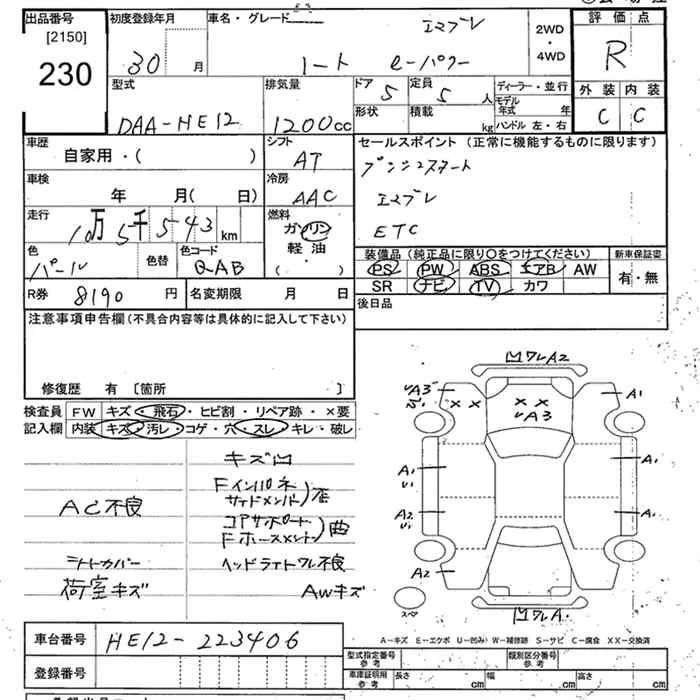 出品番号
[2150]
230
初度登録年月
30 月
車名・グレード
エマブレ
ノート e-パワー
2WD
・
4WD
評価点
R
型式
DAA-HE12
排気量
1200cc
ドア 5
定員 5 人
形状
積載 kg
ディーラー・並行
モデル年式 年
ハンドル 左・右
外装 内装
C C
車歴
自家用・( )
シフト
AT
セールスポイント (正常に機能するものに限ります)
プッシュスタート
エマブレ
ETC
車検
年 月( 日)
冷房
AAC
走行
10万5千543km
燃料
ガソリン
軽油
( ・ )
色
パール
色替
色コード
QAB
装備品 (純正品に限り○をつけてください)
PS PW ABS エアB AW
SR ナビ TV カワ
新車保証書
有・無
R券 8190 円
名変期限 月 日
後日品
注意事項申告欄(不具合内容等は具体的に記入して下さい)
修復歴 有 〔箇所 〕
検査員記入欄
FW キズ・飛石・ヒビ割・リペア跡・×要
内装 キズ・汚レ・コゲ・穴・スレ・キレ・破レ
キズ凹
AC不良
Fインパネ
サイドメンバー
コアサポート
Fホースメント
曲
シートカバー
ヘッドライトワレ不良
荷室キズ
AWキズ
凹ワレA2
A3
× × × ×
A3
A1
A1
U1
A1
A2
U1
A1
A2
スペア
凹ワレA
A-キズ E-エクボ U-凹み W-補修跡 S-サビ C-腐食 XX-交換済
車台番号
HE12-223406
登録番号
型式指定番号
参考
類別区分番号
参考
車庫証明用
参考
長さ cm
幅 cm
高さ cm